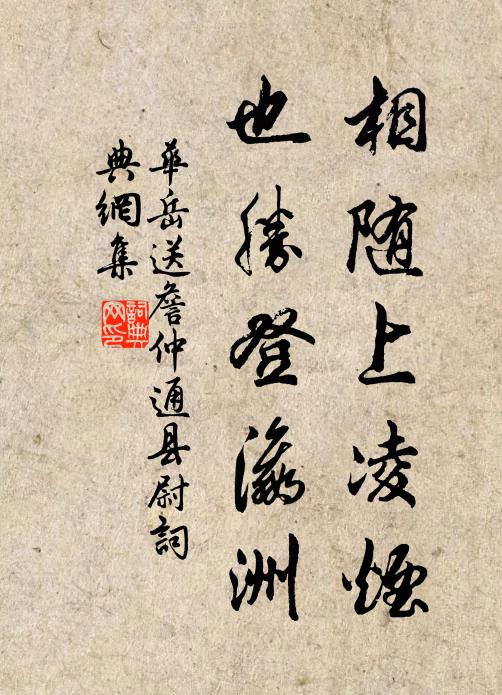 相随上凌煙
也勝登瀛洲
華岳送詹仲通县尉詞
典網集
詞典网印